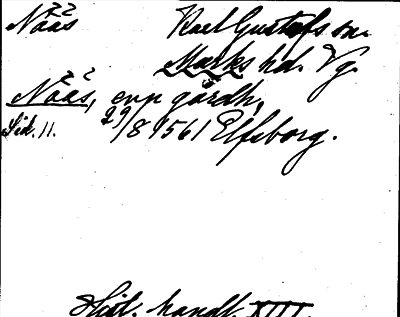 Nääs Karl Gustafs sn.
Marks hd. Vg.
Nääs, enp gårdh,
Sid. 11. 29/8 1561 Elfsborg.
Hist. handl. XIII.